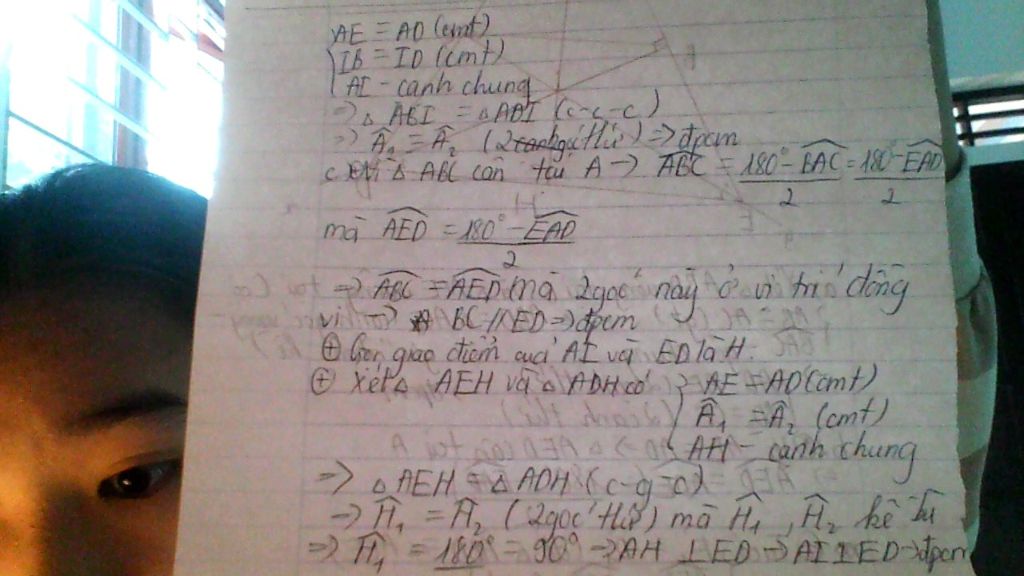 AE = AD (cmt)
IB = ID (cmt)
AI - cạnh chung
=> △ ABI = △ ADI (c-c-c)
=> Â₁ = Â₂ (2 góc t/ứ) => đpcm
c) Vì △ ABC cân tại A → \widehat{ABC} = \frac{180° - \widehat{BAC}}{2} = \frac{180° - \widehat{EAD}}{2}
mà \widehat{AED} = \frac{180° - \widehat{EAD}}{2}
=> \widehat{ABC} = \widehat{AED} mà 2 góc này ở vị trí đồng
vị → BC // ED => đpcm
⊕ Gọi giao điểm của AI và ED là H.
⊕ Xét △ AEH và △ ADH có AE = AD (cmt)
Â₁ = Â₂ (cmt)
AH - cạnh chung
=> △ AEH = △ ADH (c-g-c)
→ Ĥ₁ = Ĥ₂ (2 góc t/ứ) mà Ĥ₁, Ĥ₂ kề bù
=> Ĥ₁ = 180° = 90° → AH ⊥ ED → AI ⊥ ED → đpcm